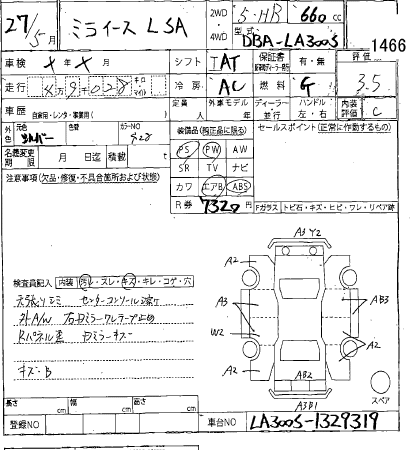 27/5月 ミライース L SA 2WD 4WD 5・HB 660 cc
型式 DBA-LA300S 1466
車検 × 年 × 月 シフト IAT 保証書 有・無 評価
走行 キロ マイル 冷房 AC 燃料 G 3.5
車歴 自家用・レンタ・事業用( ) 定員 人 外車モデル 年 ディーラー 並行 ハンドル 左・右 内装評価 C
外色 元色 シルバー 色替 カラーNO S28 装備品(純正品に限る) セールスポイント(正常に作動するもの)
名義変更期限 月 日迄 積載 t PS PW AW
SR TV ナビ
注意事項(欠品・修復・不具合箇所および状態) カワ エアB ABS
R券 7320 Fガラス トビ石・キズ・ヒビ・ワレ・リペア跡
A3 Y2
A2 A2
検査員記入 内装 汚レ・スレ・キズ・キレ・コゲ・穴
天張リヨゴミ センターコンソール 割レ A3 AB3
外A/W 右ミラーワレテープ止め W2
Rパネル歪 ミラーキズ A2
キズ・B A2 AB2
A3B1 スペア
長さ cm 幅 cm 高さ cm
登録NO 車台NO LA300S-1329319